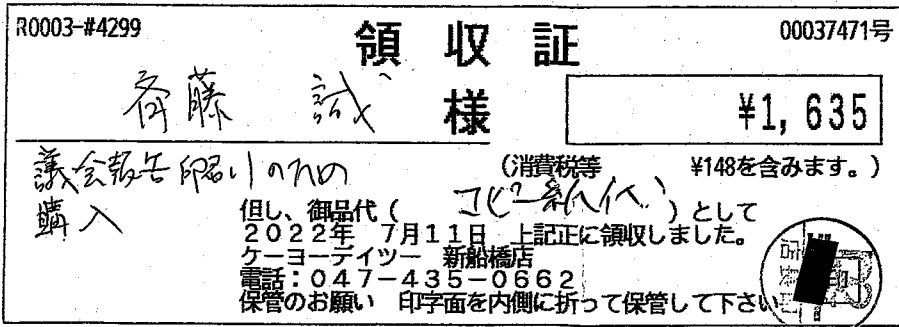 R0003-#4299
領収証
00037471号
斉藤 誠 様
¥1,635
(消費税等 ¥148を含みます。)
議会報告印刷のための
購入
但し、御品代(コピー紙代)として
2022年 7月11日 上記正に領収しました。
ケーヨーデイツー 新船橋店
電話:047-435-0662
保管のお願い 印字面を内側に折って保管して下さい